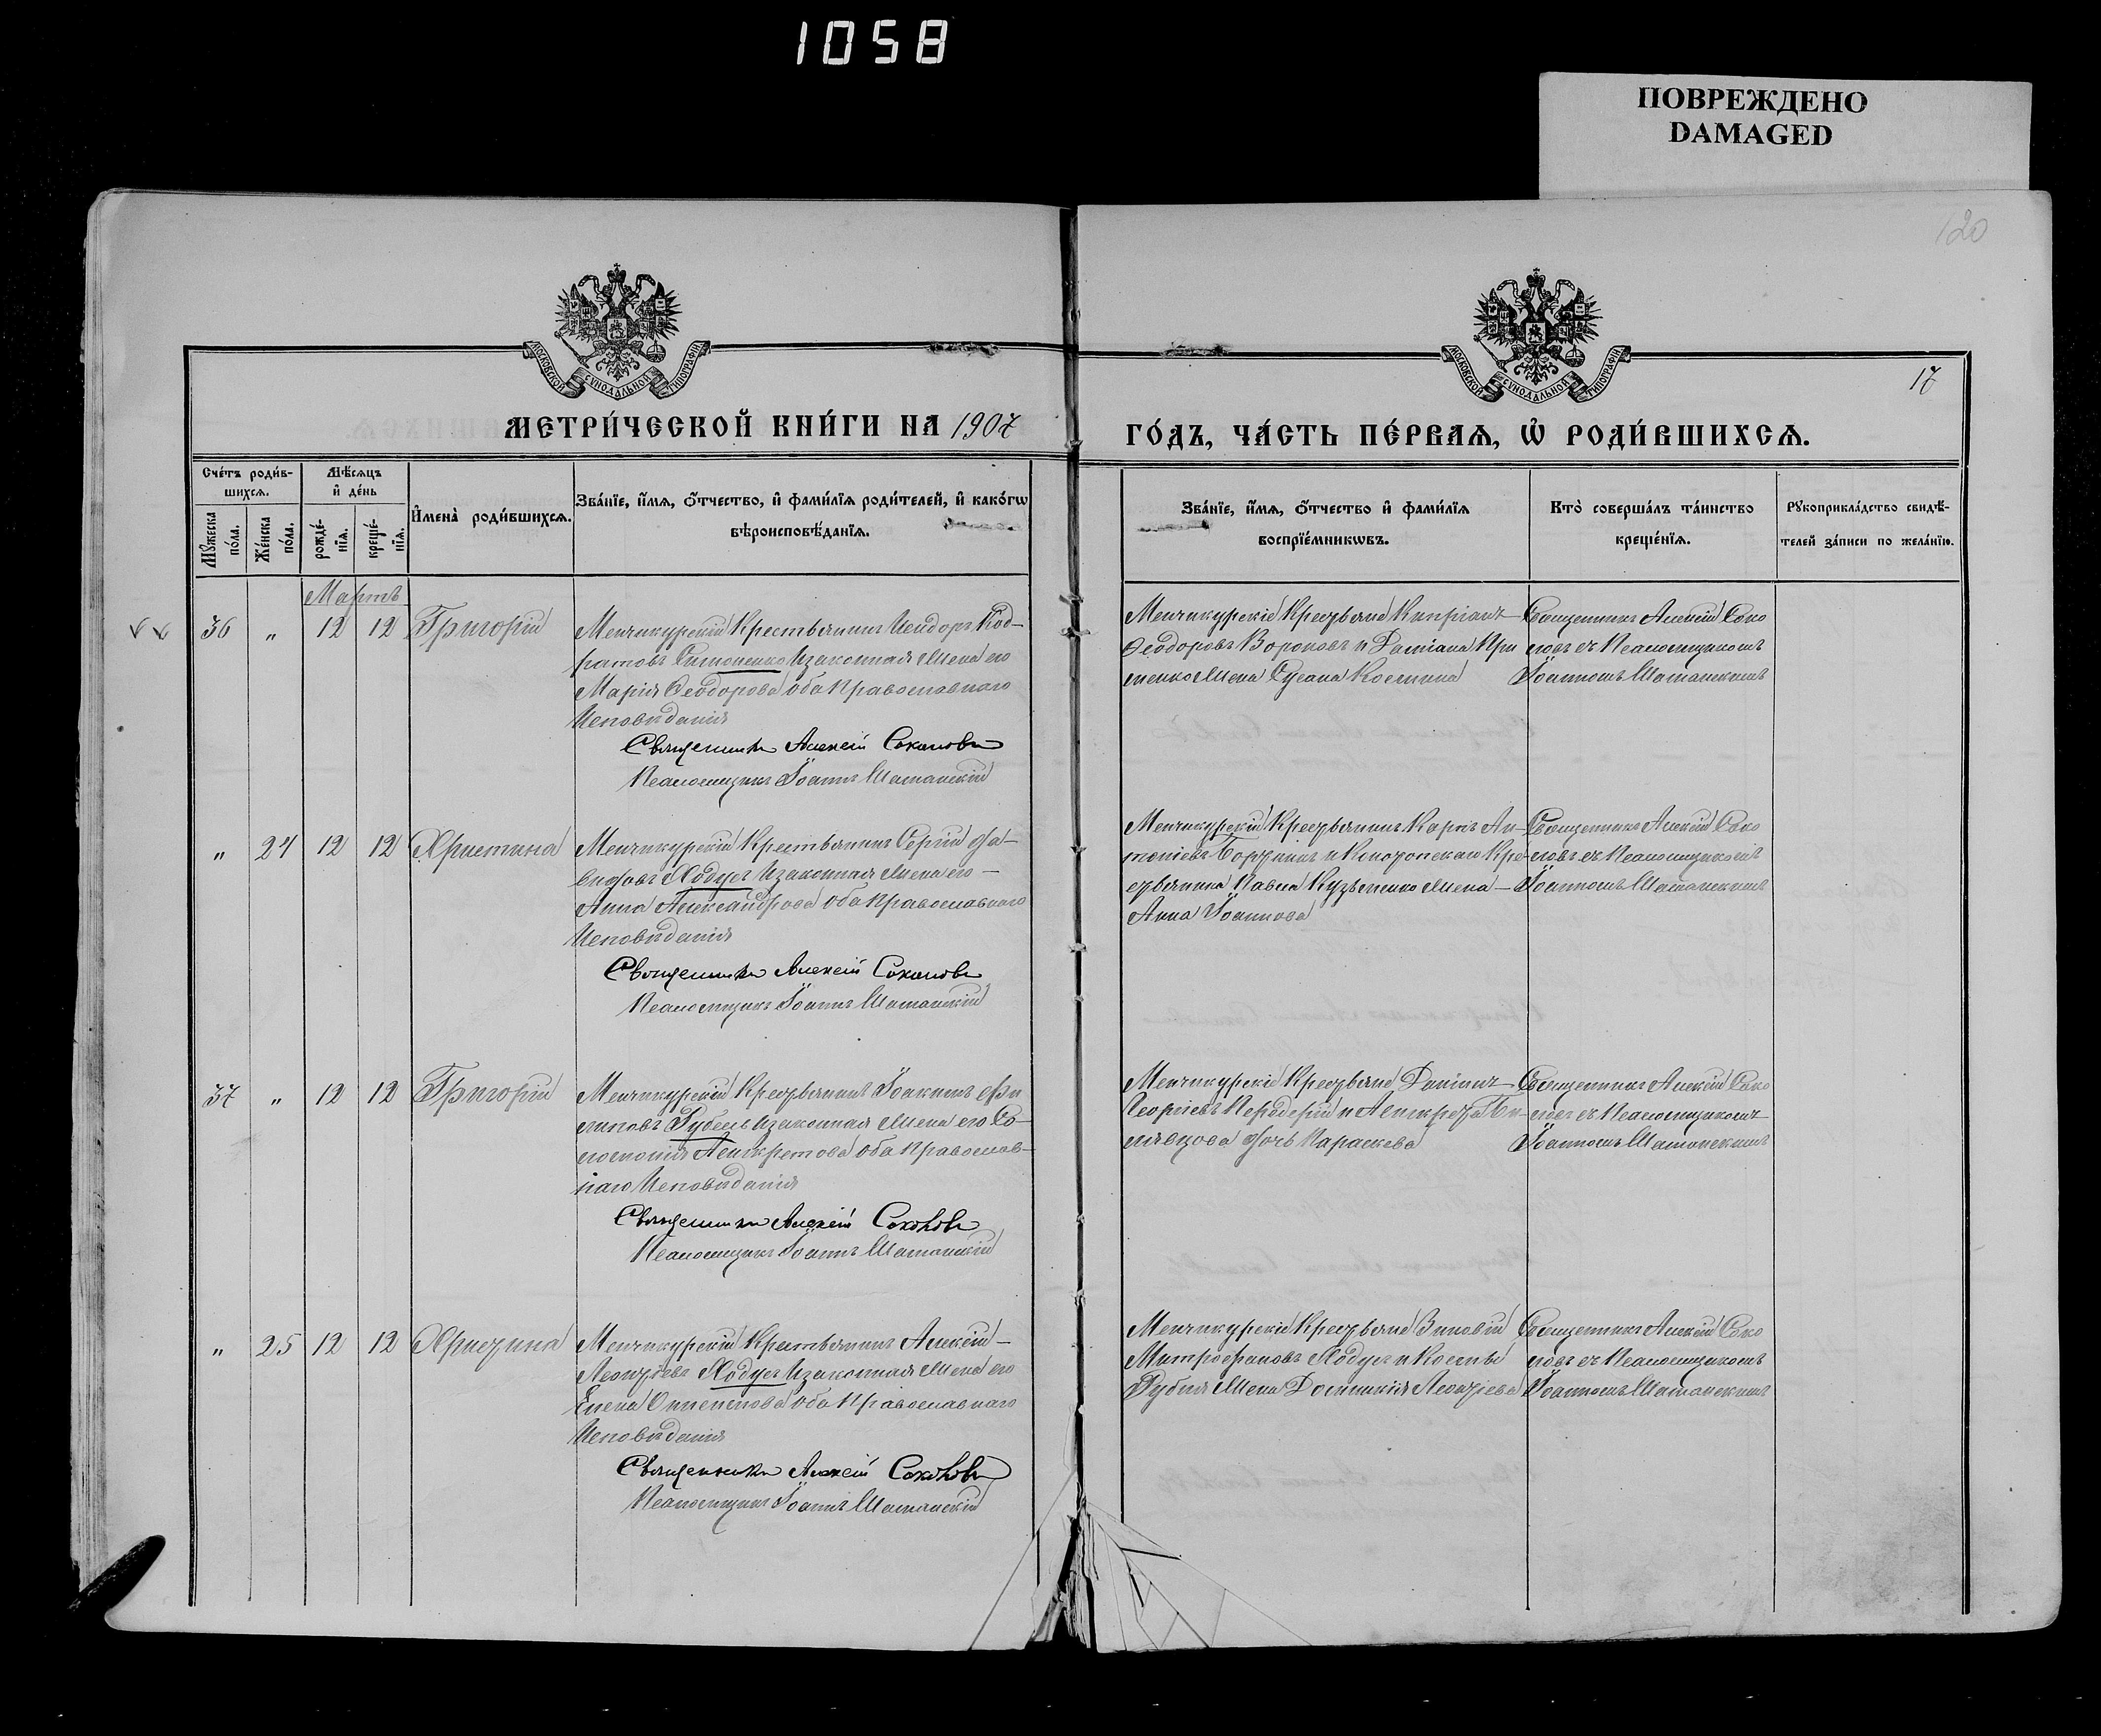 1058
ПОВРЕЖДЕНО
DAMAGED
120
МОСКОВСКОЙ СѴНОДАЛЬНОЙ ТИПОГРАФІИ
МОСКОВСКОЙ СѴНОДАЛЬНОЙ ТИПОГРАФІИ
17
МЕТРИ́ЧЕСКОЙ КНИ́ГИ НА 1907
ГО́ДЪ, ЧА́СТЬ ПЕ́РВАѦ, Ѡ҆ РОДИ́ВШИХСѦ.
Сче́тъ роди́в-
шихсѧ.
Мѣ́сѧцъ
и҆ де́нь
Мꙋ́жеска
по́ла.
Же́нска
по́ла.
рожде́-
нїѧ.
креще́-
нїѧ.
И҆мена̀ роди́вшихсѧ.
Зва́нїе, и҆́мѧ, ѻ҆́тчество, и҆ фами́лїѧ роди́телей, и҆ како́гѡ
вѣроисповѣ́данїѧ.
Зва́нїе, и҆́мѧ, ѻ҆́тчество и҆ фами́лїѧ
воспрїе́мникѡвъ.
Кто̀ соверша́лъ та́инство
креще́нїѧ.
Рꙋкоприкла́дство свидѣ́-
телей за́писи по жела́нїю.
Мартъ
36 " 12 12 Григорій
Менчикурскій Крестьянинъ Исидоръ Код-
ратовъ Симоненко И законная Жена его
Марія Ѳеодорова оба Православнаго
Исповѣданія
Священникъ Алексій Соколовъ
Псаломщикъ Іоаннъ Шаманскій
Менчикурскіе Крестьяне Кипріанъ
Ѳеодоровъ Вороновъ и Даміана При
менко Жена Сусана Космина
Священникъ Алексій Соко
ловъ съ Псаломщикомъ
Іоанномъ Шаманскимъ
" 24 12 12 Христина
Менчикурскій Крестьянинъ Сергій Да-
видовъ Ходусъ И законная Жена его -
Анна Александрова оба Православнаго
Исповѣданія
Священникъ Алексій Соколовъ
Псаломщикъ Іоаннъ Шаманскій
Менчикурскій Крестьянинъ Карпъ Ан-
тоніевъ и Крe-
стьянина Павла Кузьменко Жена -
Анна Іоаннова
Священникъ Алексій Соко
ловъ съ Псаломщикомъ
Іоанномъ Шаманскимъ
37 " 12 12 Григорій
Менчикурскій Крестьянинъ Іоакимъ Фи
липовъ Рубель И законная Жена его Со-
ломонія Асигкретова оба Православ-
наго Исповѣданія
Священникъ Алексій Соколовъ
Псаломщикъ Іоаннъ Шаманскій
Менчикурскіе Крестьяне Даніилъ
Георгіевъ и Асигкрета Би-
дочь Параскева
Священникъ Алексій Соко
ловъ съ Псаломщикомъ
Іоанномъ Шаманскимъ
" 25 12 12 Христина
Менчикурскій Крестьянинъ Алексій -
Леонтіевъ Ходусъ И законная Жена его
Елена оба Православнаго
Исповѣданія
Священникъ Алексій Соколовъ
Псаломщикъ Іоаннъ Шаманскій
Менчикурскіе Крестьяне Зиновій
Митрофановъ Ходусъ и Космы
Рубля Жена Домникія Леонтіева
Священникъ Алексій Соко
ловъ съ Псаломщикомъ
Іоанномъ Шаманскимъ